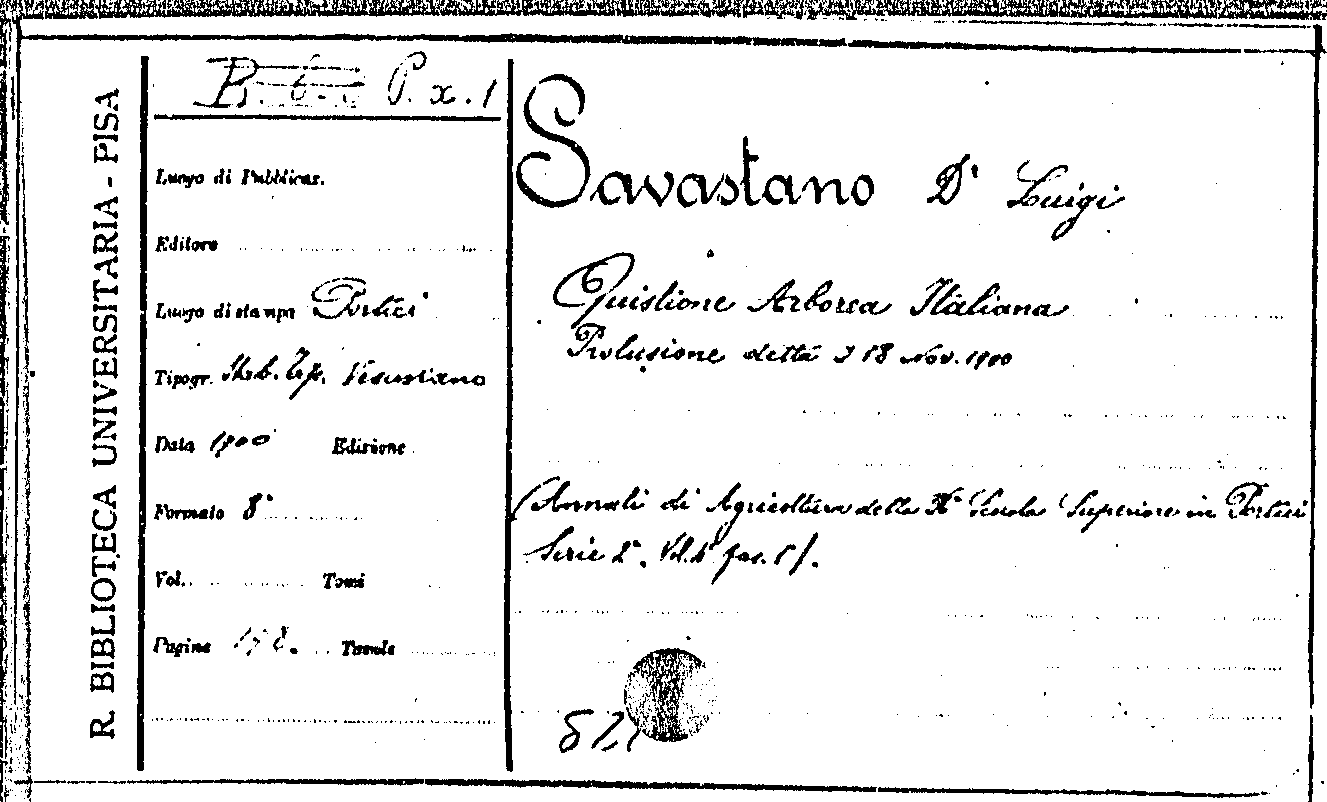 R. BIBLIOTECA UNIVERSITARIA - PISA
B. 6. P. x. 1
Luogo di Pubblicaz.
Editore
Luogo di stampa Portici
Tipogr. Stab. Tip. Vesuviano
Data 1900 Edizione
Formato 8°
Vol. Tomi
Pagine 178. Tavole
Savastano Dr Luigi
Quistione Arborea Italiana
Prolusione detta il 18 Nov. 1900
(Annali di Agricoltura della Ra Scuola Superiore in Portici
Serie 2a. Vol. fas. 1).
521